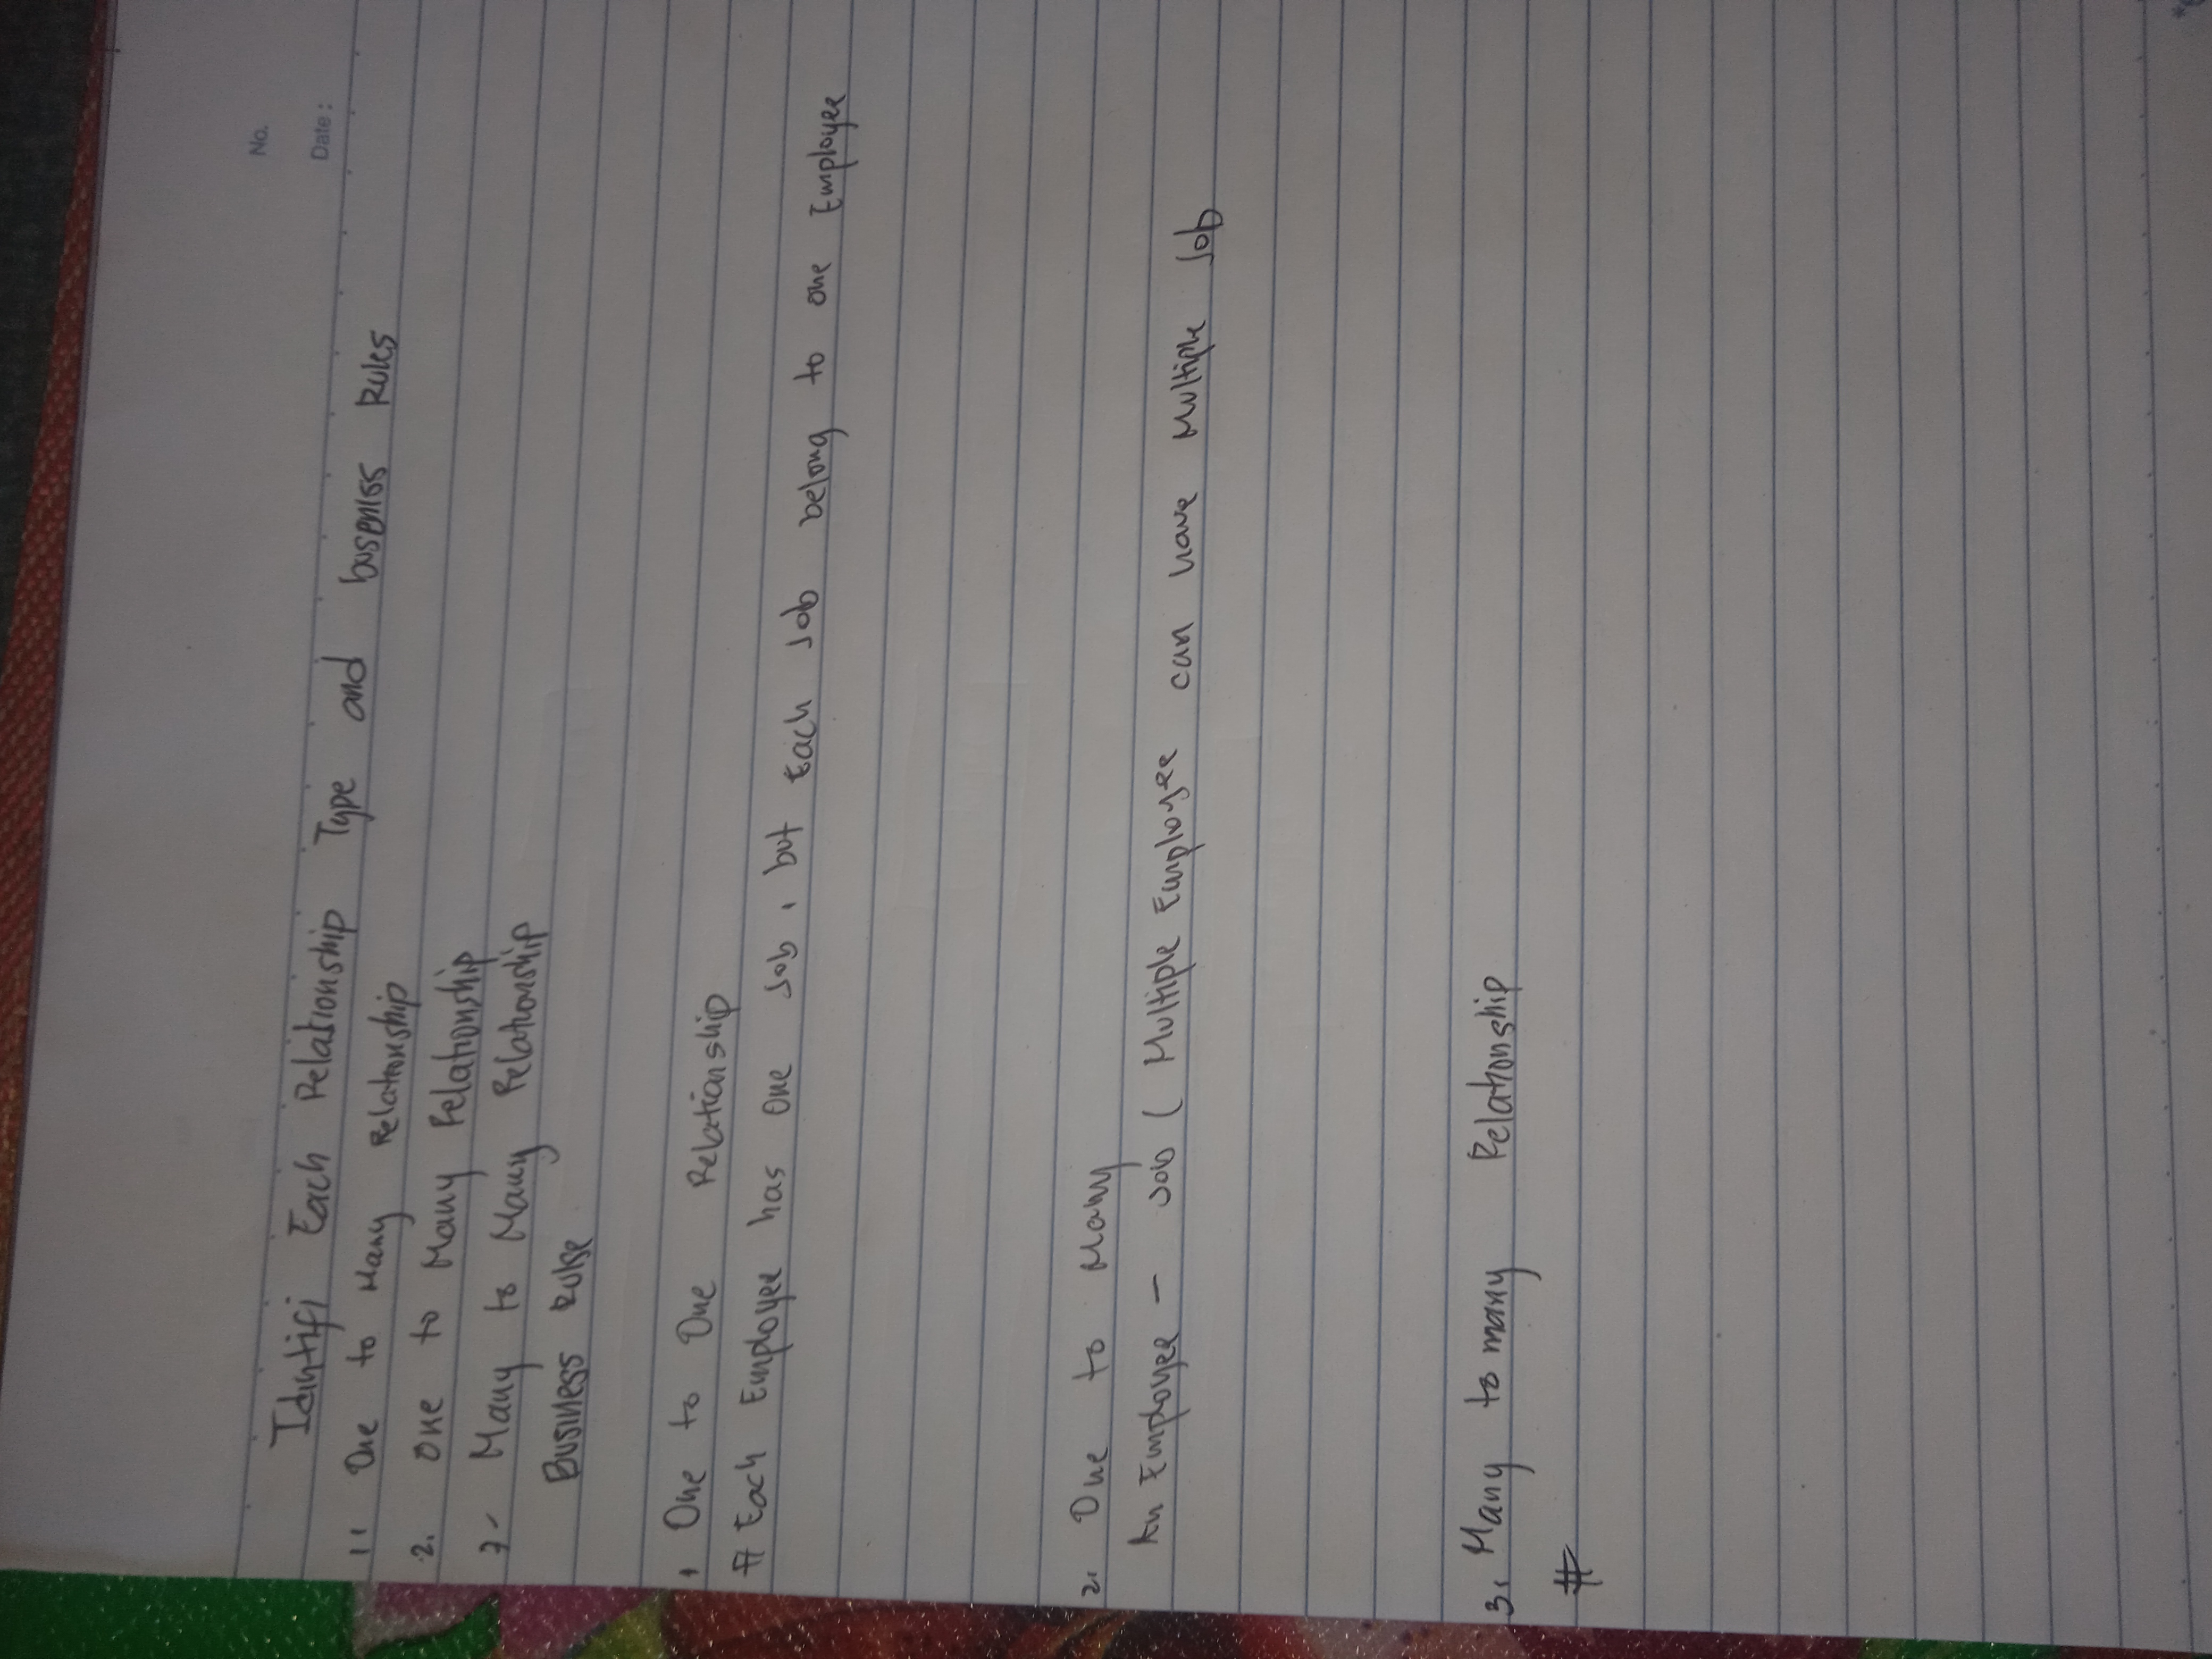 No.
Date :
Idintifi Each Relationship Type and buseniss Rules
1. One to Many Relationship
2. One to Many Relationship
3. Many to Many Relationship
Business Rulse
1 One to One Relationship
# Each Employee has one Job, but Each Job belong to one Employee
2. One to Many
An Employee - Job ( Multiple Employee can have Multiple Job
3. Many to many Relationship
#